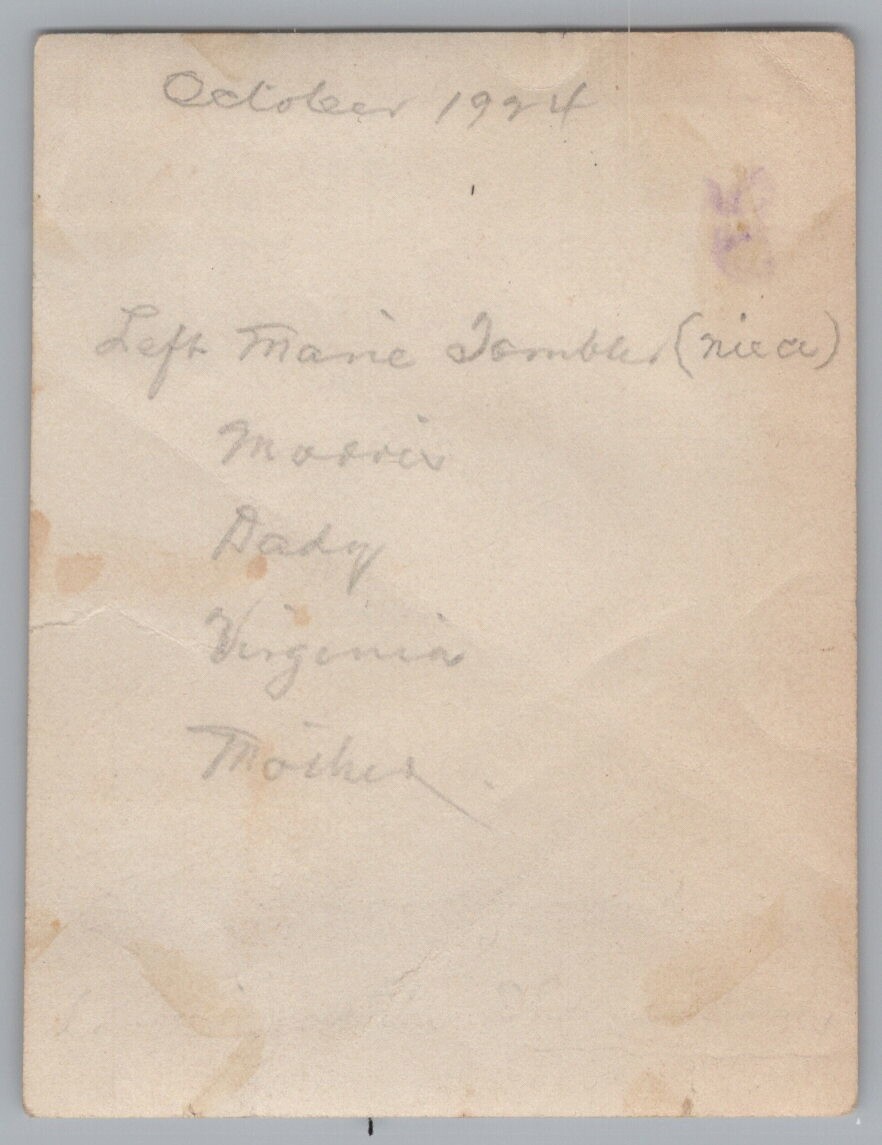 October 1924
Left Marie Tombler (niece)
Morris
Dady
Virginia
Mother